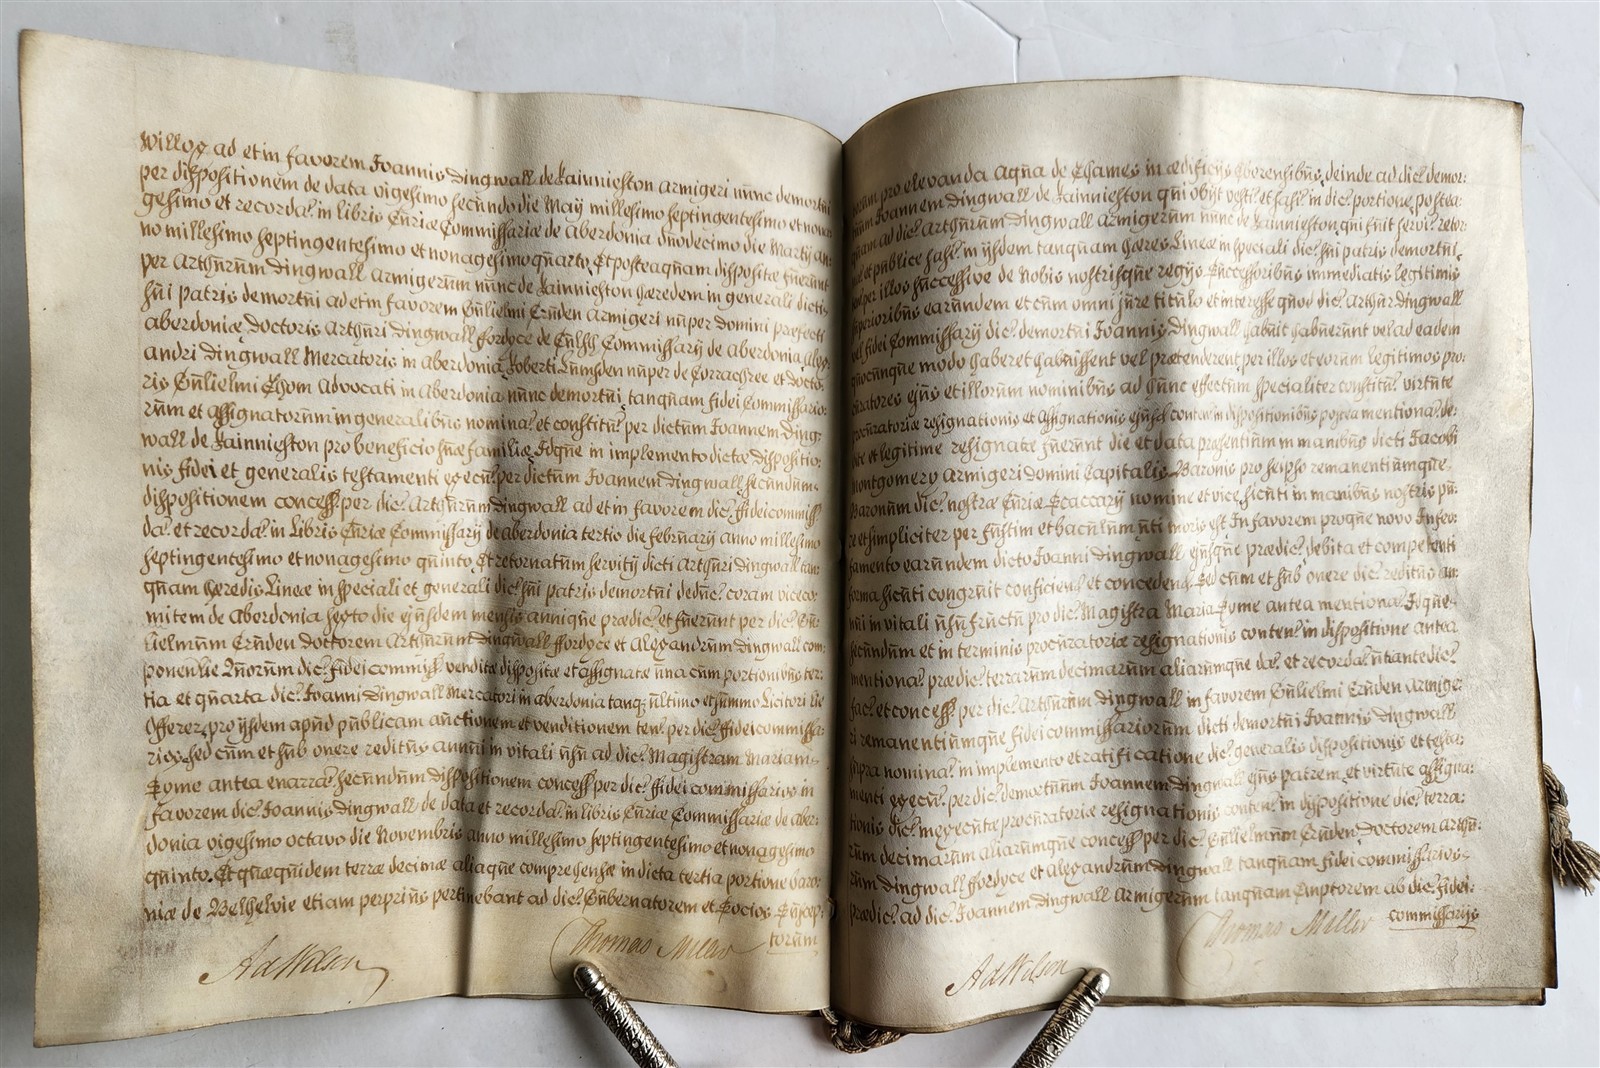 Willox ad et in favorem Joannis Dingwall de Rainnieston armigeri nunc demortui
per dispositionem de data vigesimo secundo die Maij millesimo septingentesimo et nona
gesimo et recorda: in libris Curiæ Commissariæ de Aberdonia duodecimo die Martij an:
no millesimo septingentesimo et nonagesimo quarto, Et posteaquam dispositæ fuerunt
per Arthurum Dingwall armigerum nunc de Rainnieston hæredem in generali dicti
sui patris demortui ad et in favorem Gulielmi Cruden armigeri nuper domini præfecti
Aberdoniæ, doctoris Arthuri Dingwall ffordyce de Culsh Commissarij de Aberdonia, Alex:
andri Dingwall Mercatoris in Aberdonia, Roberti Lumsden nuper de Corrachree et docto:
ris Gulielmi Thom Advocati in Aberdonia nunc demortui, tanquam fidei Commissario:
rum et assignatorum in generalibus nomina: et constitut: per dictum Joannem Ding:
wall de Rainnieston pro beneficio suæ familiæ, Idque in implemento dictæ dispositio:
nis fidei et generalis testamenti execut: per dictum Joannem Dingwall, secundum
dispositionem concess: per dic: Arthurum Dingwall ad et in favorem dic: fideicommiss:
da: et recorda: in Libris Curiæ Commissarij de Aberdonia tertio die februarij anno millesimo
septingentesimo et nonagesimo quinto, Et retornatum servitij dicti Arthuri Dingwall tan:
quam hæredis Lineæ in speciali et generali dic: sui patris demortui deduc: coram viceco:
mitem de Aberdonia sexto die ejusdem mensis annique prædic: et fuerunt per dic: Gu:
lielmum Cruden doctorem Arthurum Dingwall ffordyce et Alexandrum Dingwall com:
ponen: Quorum dic: fidei commiss: venditæ dispositæ et assignatæ una cum portionibus ter:
tia et quarta dic: Joanni Dingwall Mercatori in Aberdonia tanq: ultimo et summo Licitori
Offerer, pro ijsdem apud publicam auctionem et venditionem ten: per dic: fideicommissa:
rios, sed cum et sub onere reditus annui in vitali usu ad dic: Magistram Mariam
antea enarra: secundum dispositionem concess: per dic: fidei commissarios in
favorem dic: Joannis Dingwall de data et recorda: in libris Curiæ Commissariæ de Aber:
donia vigesimo octavo die Novembris anno millesimo septingentesimo et nonagesimo
quinto. Et quæquidem terræ decimæ aliaque comprehensæ in dicta tertia portione Baro:
niæ de Belhelvie etiam per prius pertinebant ad dic: Gubernatorem et Socios
torum
Ad Wilson Thomas Miller
pro elevanda aqua de Thames in ædificijs Eborensibus, deinde ad dic: demor:
tuum Joannem Dingwall de Rainnieston qui obijt vest: et sas: in dic: portione, postea:
quam ad dic: Arthurum Dingwall armigerum nunc de Rainnieston, qui fuit servi: retor:
et publice sas: in ijsdem tanquam hæres Lineæ in speciali dic: sui patris demortui,
per illos successive de Nobis nostrisque regijs Successoribus immediatis legitimis
superioribus earundem et cum omni jure titulo et interesse quod dic: Arthur Dingwall
vel fidei Commissarij dic: demortui Joannis Dingwall habuit habuerunt vel ad eadem
quocunque modo haberet habuissent vel prætenderent, per illos et eorum legitimos pro:
curatores ejus et illorum nominibus ad hunc effectum specialiter constitut: virtute
procuratoriæ resignationis et Assignationis ejusd: conten: in dispositionibus postea mentiona: de:
bite et legitime resignatæ fuerunt die et data præsentium in manibus dicti Jacobi
Montgomery Armigeri domini Capitalis Baronis pro seipso remanentiumque
Baronum dic: nostræ Curiæ Scaccarij nomine et vice, sicuti in manibus nostris pu:
re et simpliciter per fustim et baculum uti moris est In favorem proque novo Infeo:
famento earundem dicto Joanni Dingwall ejusque prædic: debita et competenti
forma sicuti congruit conficien: et conceden: Sed cum et sub onere dic: reditus an:
nui in vitali usu fructu pro dic: Magistra Maria antea mentiona: Idque
secundum et in terminis procuratoriæ resignationis conten: in dispositione antea
mentiona: prædic: terrarum decimarum aliarumque da: et recorda: ut ante dic:
fac: et concess: per dic: Arthurum Dingwall in favorem Gulielmi Cruden Armige:
ri remanentiumque fidei commissariorum dicti demortui Joannis Dingwall
supra nomina: in implemento et ratificatione dic: generalis dispositionis et testa:
menti execut: per dic: demortuum Joannem Dingwall ejus patrem, et virtute assigna:
tionis dic: inexecutæ procuratoriæ resignationis conten: in dispositione dic: terra:
rum decimarum aliarumque concess: per dic: Gulielmum Cruden doctorem Arthu:
rum Dingwall ffordyce et Alexandrum Dingwall tanquam fidei commissarios
prædic: ad dic: Joannem Dingwall Armigerum tanquam Emptorem ab dic: fidei:
commissarijs
Ad Wilson Thomas Miller